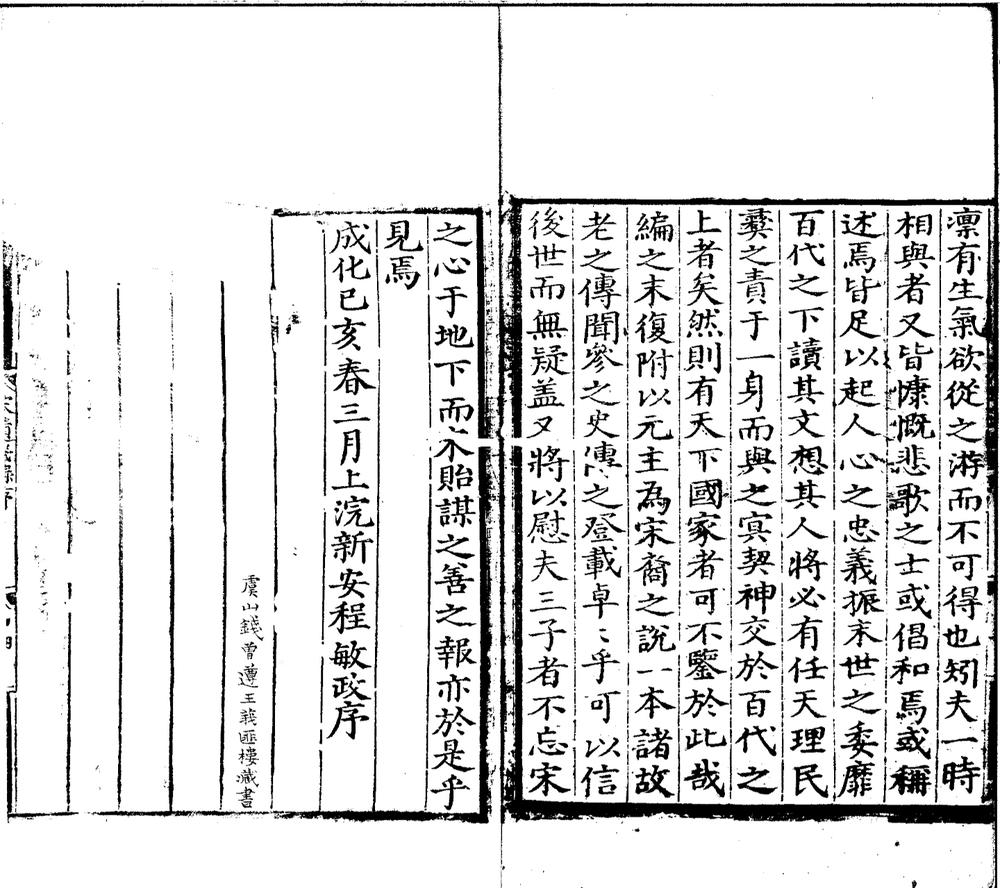 凛有生氣欲從之游而不可得也矧夫一時
相與者又皆慷慨悲歌之士或倡和焉或稱
述焉皆足以起人心之忠義振末世之委靡
百代之下讀其文想其人將必有任天理民
彛之責于一身而與之冥契神交於百代之
上者矣然則有天下國家者可不鑒於此哉
編之末復附以元主為宋裔之說一本諸故
老之傳聞參之史傳之登載卓〻乎可以信
後世而無疑盖又將以慰夫三子者不忘宋
之心于地下而不貽謀之善之報亦於是乎
見焉
成化己亥春三月上浣新安程敏政序
虞山錢曾遵王莪匪樓藏書
宋遺民錄序